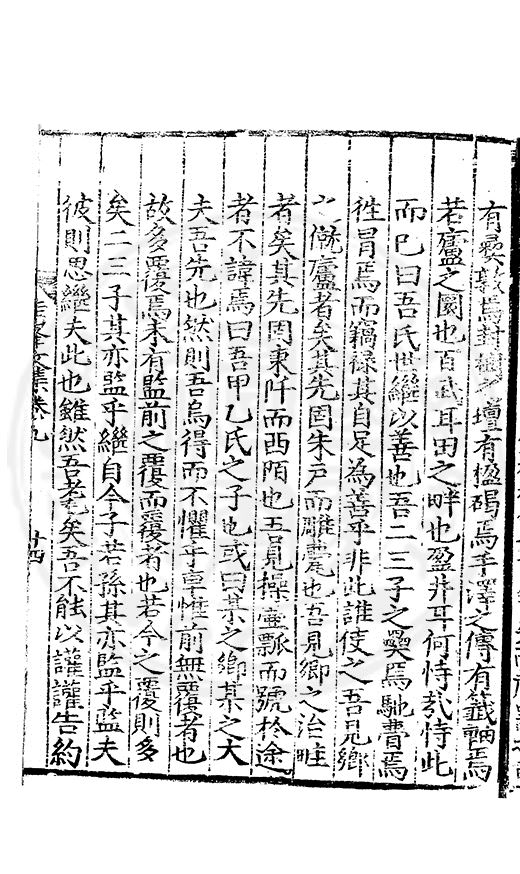 有爨敦焉封樹之壇有楹碣焉手澤之傳有籤軸焉
若廬之圜也百武耳田之畔也盈井耳何恃哉恃此
而已曰吾氏世繼以善也吾二三子之爨焉馳費焉
徃冐焉而竊祿其自足為善乎非此誰使之吾見鄉
之僦廬者矣其先固朱戸而雕甍也吾見鄉之治畦
者矣其先固東阡而西陌也吾見操壷瓢而號於途
者不諱焉曰吾甲乙氏之子也或曰某之鄉某之大
夫吾先也然則吾烏得而不懼乎享惟前無覆者也
故多覆焉未有監前之覆而覆者也若今之覆則多
矣二三子其亦監乎繼自今子若孫其亦監乎監夫
彼則思繼夫此也雖然吾耄矣吾不能以讙讙告約
文集卷九
十四